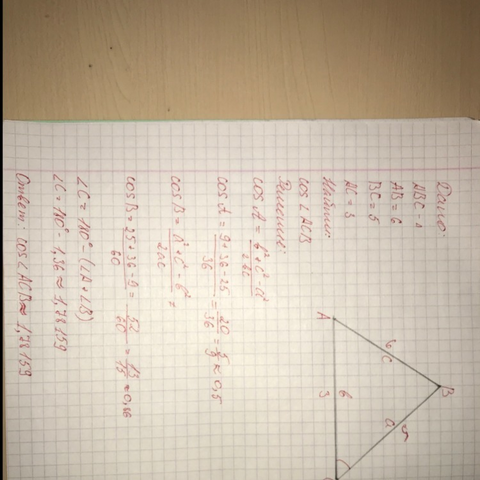 Дано:
ABC - Δ
AB = 6
BC = 5
AC = 3
Найти:
cos ∠ACB
Решение:
cos A = b² + c² - a² / 2bc
cos A = 9 + 36 - 25 / 36 = 20 / 36 = 5 / 9 ≈ 0,5
cos B = a² + c² - b² / 2ac =
cos B = 25 + 36 - 9 / 60 = 52 / 60 = 13 / 15 ≈ 0,86
∠C = 180° (∠A + ∠B)
∠C = 180° 1,36 ≈ 1,78159
Ответ: cos ∠ACB ≈ 1,78159
B
6 c
a 5
A
b
3